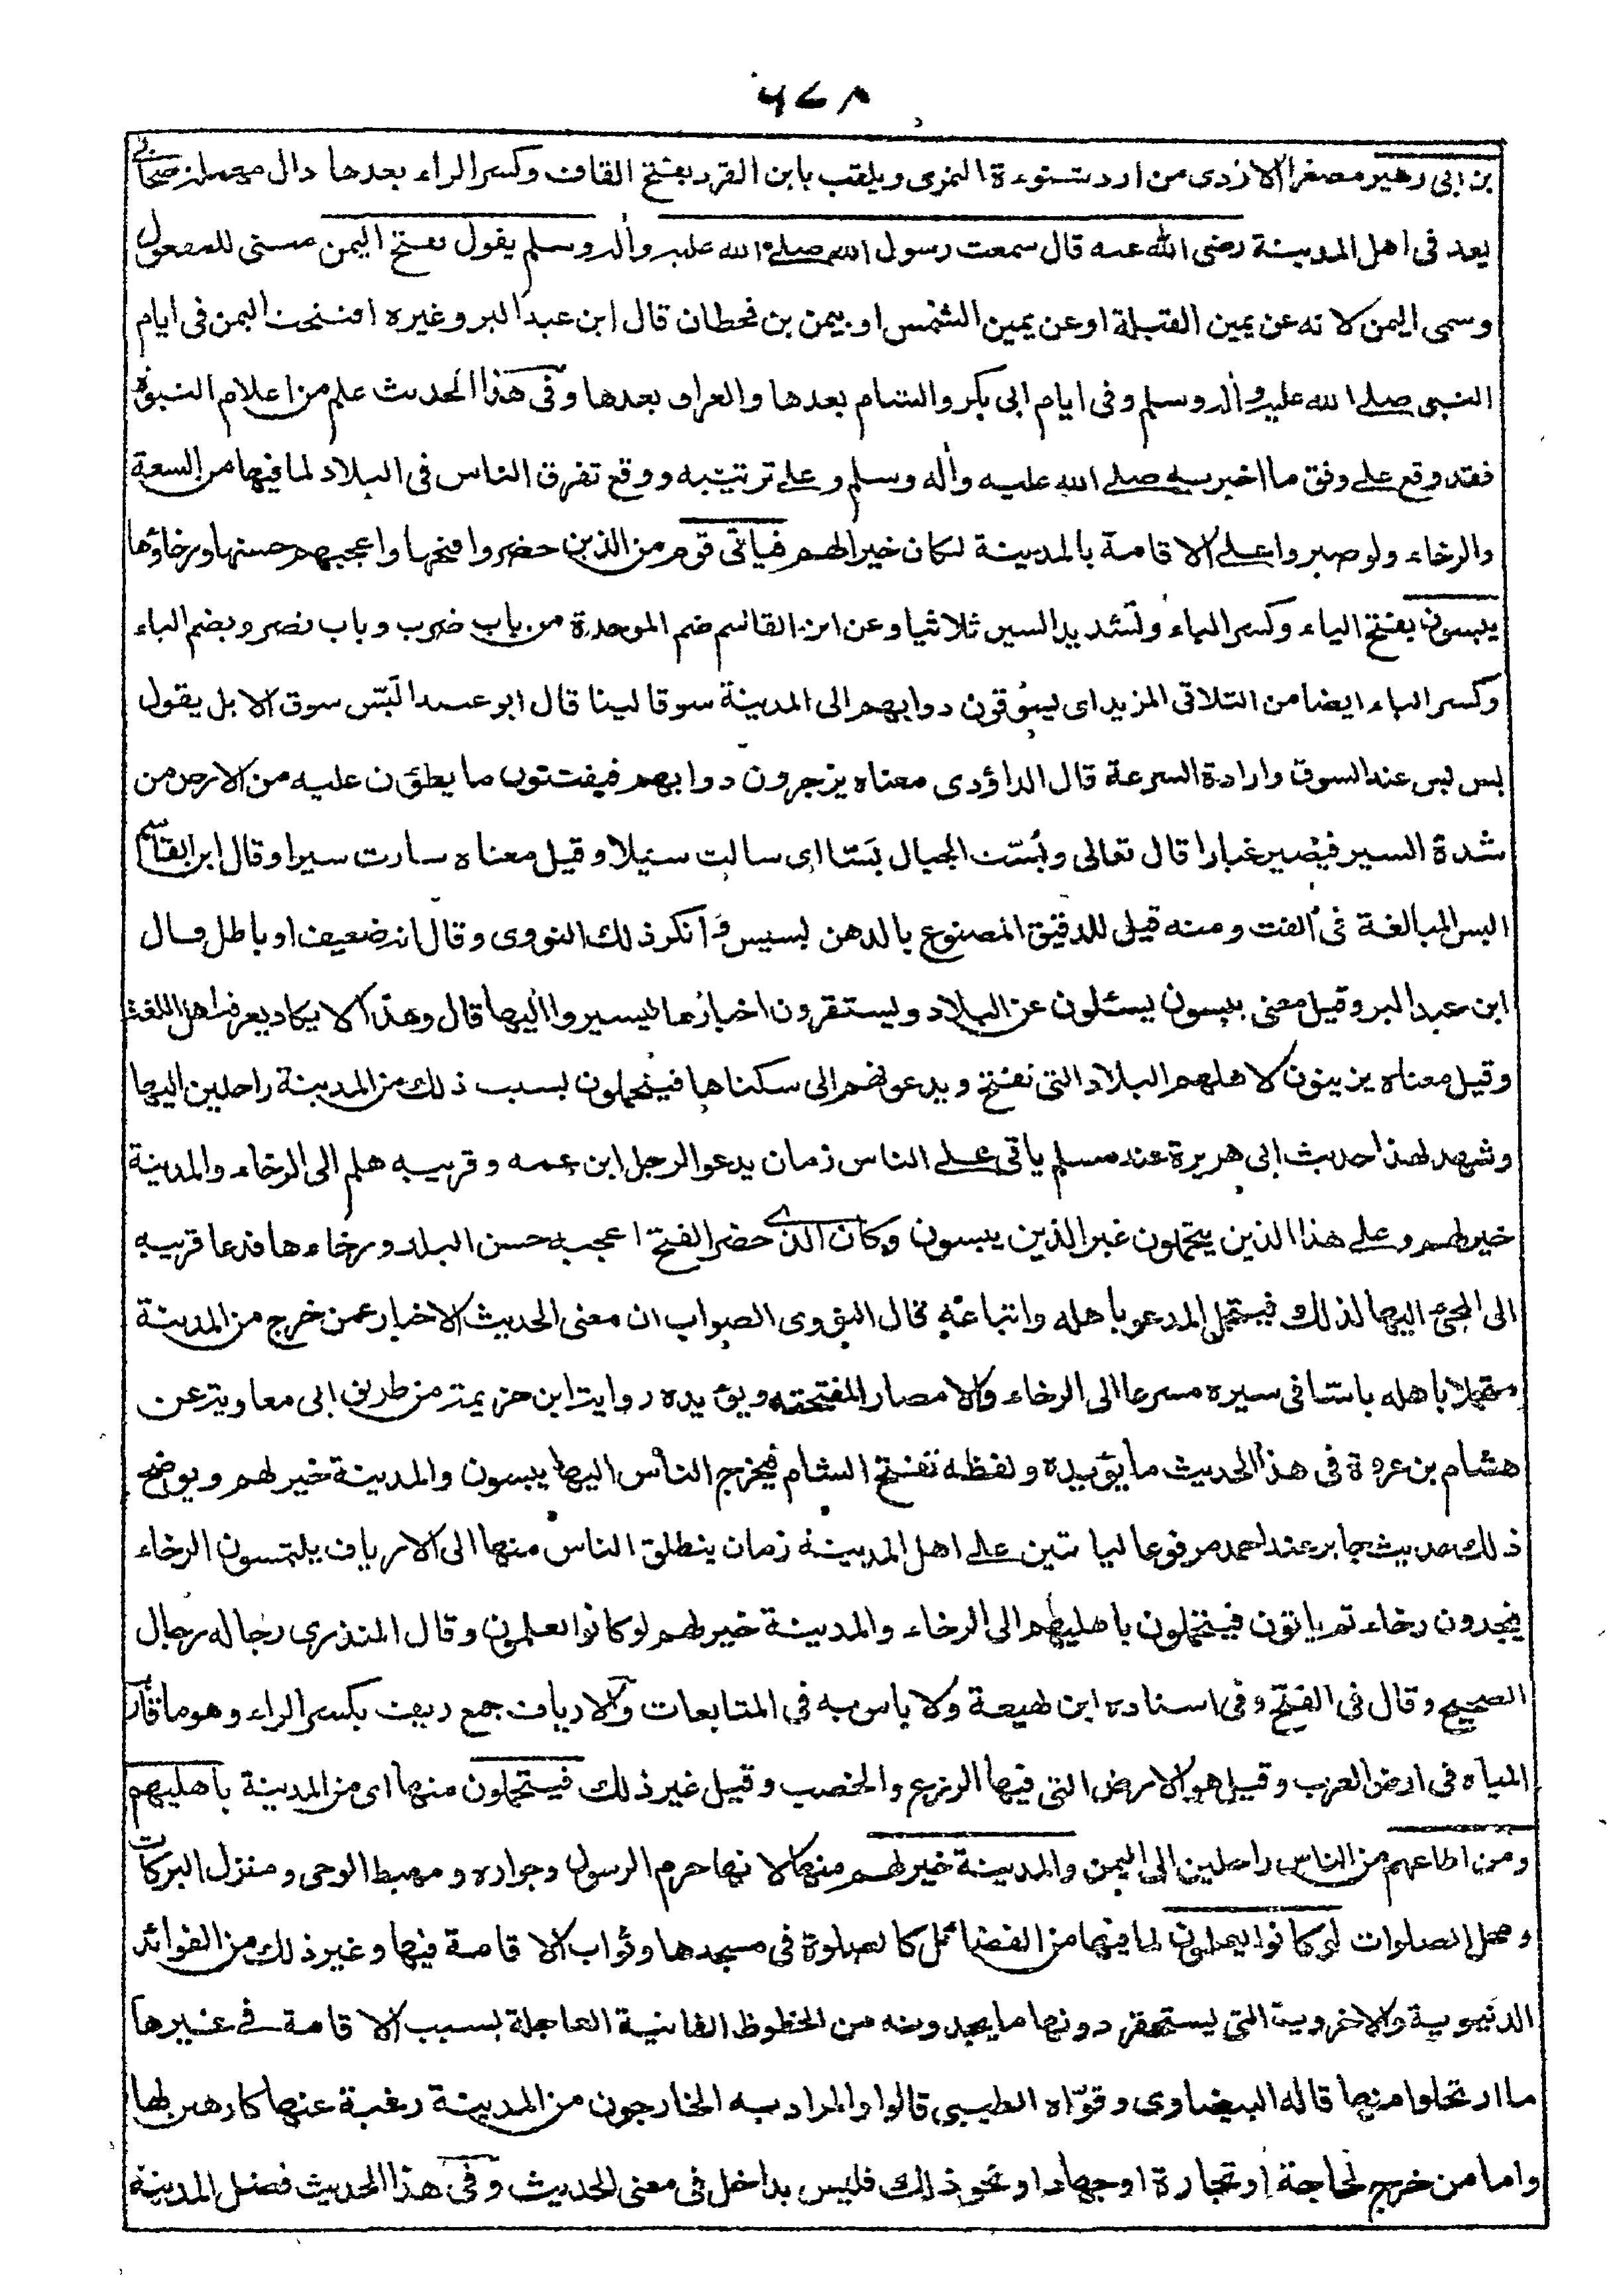 ٦٧٨
بن ابى زهير مصغرا الازدى من ازد شنوءة النمرى ويلقب بابن القرد بفتح القاف وكسر الراء بعدها دال مهملة صحابى
يعد فى اهل المدينة رضى الله عنه قال سمعت رسول الله صلى الله عليه واله وسلم يقول تفتح اليمن مبنى للمفعول
وسمى اليمن لانه عن يمين القبلة او عن يمين الشمس او بيمن بن قحطان قال ابن عبد البر وغيره افتتحت اليمن فى ايام
النبى صلے الله عليه واله وسلم وفى ايام ابى بكر والشام بعدها والعراق بعدها وفى هذا الحديث علم من اعلام النبوة
فقد وقع علے وفق ما اخبر به صلے الله عليه واله وسلم وعلے ترتيبه ووقع تفرق الناس فى البلاد لما فيها من السعة
والرخاء ولو صبروا علے الاقامة بالمدينة لكان خيرا لهم فياتى قوم من الذين حضروا فتحها واعجبهم حسنها ورخاؤها
يبسون بفتح الياء وكسر الباء وتشديد السين ثلاثيا وعن ابن القاسم ضم الموحدة من باب ضرب وباب نصر وبضم الباء
وكسر الباء ايضا من الثلاثى المزيد اى يسوقون دوابهم الى المدينة سوقا لينا قال ابو عبيد البس سوق الابل يقول
بس بس عند السوق وارادة السرعة قال الداؤدى معناه يزجرون دوابهم فيفتتون ما يطؤن عليه من الارض من
شدة السير فيصير غبارا قال تعالى وبُسّت الجبال بَسّا اى سالت سيلا وقيل معناه سارت سيرا وقال ابن القاسم
البس المبالغة فى الفت ومنه قيل للدقيق المصنوع بالدهن بسيس وانكر ذلك النووى وقال انه ضعيف او باطل قال
ابن عبد البر وقيل معنى يبسون يسئلون عن البلاد ويستقرون اخبارها ليسيروا اليها قال وهذا لا يكاد يعرفه اهل اللغة
وقيل معناه يزينون لاهلهم البلاد التى تفتح ويدعونهم الى سكناها فيتحملون بسبب ذلك من المدينة راحلين اليها
وشهد لهذا حديث ابى هريرة عند مسلم ياتى علے الناس زمان يدعو الرجل ابن عمه وقريبه هلم الى الرخاء والمدينة
خير لهم وعلے هذا الذين يتحملون غير الذين يبسون وكان الذى حضر الفتح اعجبه حسن البلد ورخاءها فدعا قريبه
الى المجئ اليها لذلك فيتحمل المدعو باهله واتباعه قال النووى الصواب ان معنى الحديث الاخبار عمن خرج من المدينة
متحملا باهله باسا فى سيره مسرعا الى الرخاء والامصار المفتتحة ويؤيده رواية ابن خزيمة من طريق ابى معاوية عن
هشام بن عروة فى هذا الحديث ما يؤيده ولفظه تفتح الشام فيخرج الناس اليها يبسون والمدينة خير لهم ويوضح
ذلك حديث جابر عند احمد مرفوعا لياتين علے اهل المدينة زمان ينطلق الناس منها الى الارياف يلتمسون الرخاء
فيجدون رخاء ثم ياتون فيتحملون باهليهم الى الرخاء والمدينة خير لهم لو كانوا يعلمون وقال المنذرى رجاله رجال
الصحيح وقال فى الفتح وفى اسناده ابن لهيعة ولا باس به فى المتابعات والارياف جمع ريف بكسر الراء وهو ما قارب
المياه فى ارض العرب وقيل هو الارض التى فيها الزرع والخصب وقيل غير ذلك فيتحملون منها اى من المدينة باهليهم
ومن اطاعهم من الناس راحلين الى اليمن والمدينة خير لهم منها لانها حرم الرسول وجواره ومهبط الوحى ومنزل البركات
ومحل الصلوات لو كانوا يعلمون لما فيها من الفضائل كالصلوة فى مسجدها وثواب الاقامة فيها وغير ذلك من الفوائد
الدنيوية والاخروية التى يستحقر دونها ما يجدونه من الحظوظ الفانية العاجلة بسبب الاقامة فى غيرها
ما ارتحلوا منها قاله البيضاوى وقوّاه الطيبى قالوا والمراد به الخارجون من المدينة رغبة عنها كارهين لها
واما من خرج لحاجة او تجارة او جهاد او نحو ذلك فليس بداخل فى معنى الحديث وفى هذا الحديث فضل المدينة